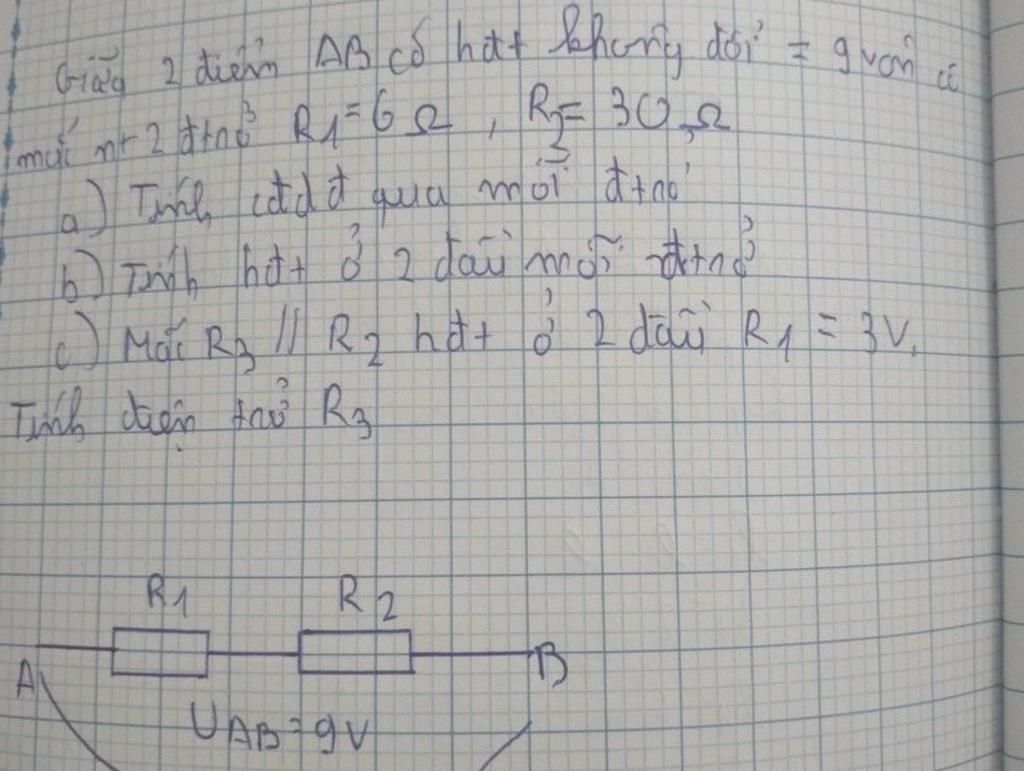 Giữa 2 điểm AB có hđt không đổi = 9 vôn có
mắc nt 2 đtrở R1 = 6 Ω, R2 = 30 Ω
a) Tính cđdđ qua mỗi đtrở
b) Tính hđt ở 2 đầu mỗi đtrở
c) Mắc R3 // R2 hđt ở 2 đầu R1 = 3V.
Tính điện trở R3
R1 R2
A B
UAB = 9V